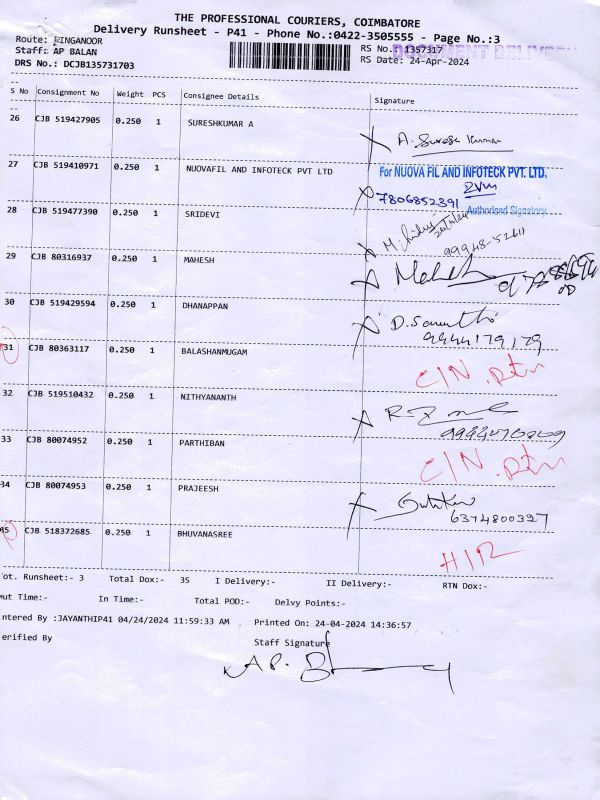 THE PROFESSIONAL COURIERS, COIMBATORE
Delivery Runsheet - P41 - Phone No.:0422-3505555 - Page No.:3
Route: PINGANOOR
RS No.: 1357317
DOCUMENT DELIVERY
Staff: AP BALAN
RS Date: 24-Apr-2024
DRS No.: DCJB135731703
S No Consignment No Weight PCS Consignee Details Signature
26 CJB 519427905 0.250 1 SURESHKUMAR A
A. Suresh Kumar
27 CJB 519410971 0.250 1 NUOVAFIL AND INFOTECK PVT LTD
For NUOVA FIL AND INFOTECK PVT. LTD.
7806852391
Authorised Signatory
28 CJB 519477390 0.250 1 SRIDEVI
99948-52611
29 CJB 80316937 0.250 1 MAHESH
Mahesh
30 CJB 519429594 0.250 1 DHANAPPAN
9444179179
31 CJB 80363117 0.250 1 BALASHANMUGAM
C/N. Rtn
32 CJB 519510432 0.250 1 NITHYANANTH
33 CJB 80074952 0.250 1 PARTHIBAN
C/N. Rtn
34 CJB 80074953 0.250 1 PRAJEESH
6374800327
35 CJB 518372685 0.250 1 BHUVANASREE
ot. Runsheet:- 3 Total Dox:- 35 I Delivery:- II Delivery:- RTN Dox:-
ut Time:- In Time:- Total POD:- Delvy Points:-
ntered By :JAYANTHIP41 04/24/2024 11:59:33 AM Printed On: 24-04-2024 14:36:57
erified By Staff Signature
AP. B